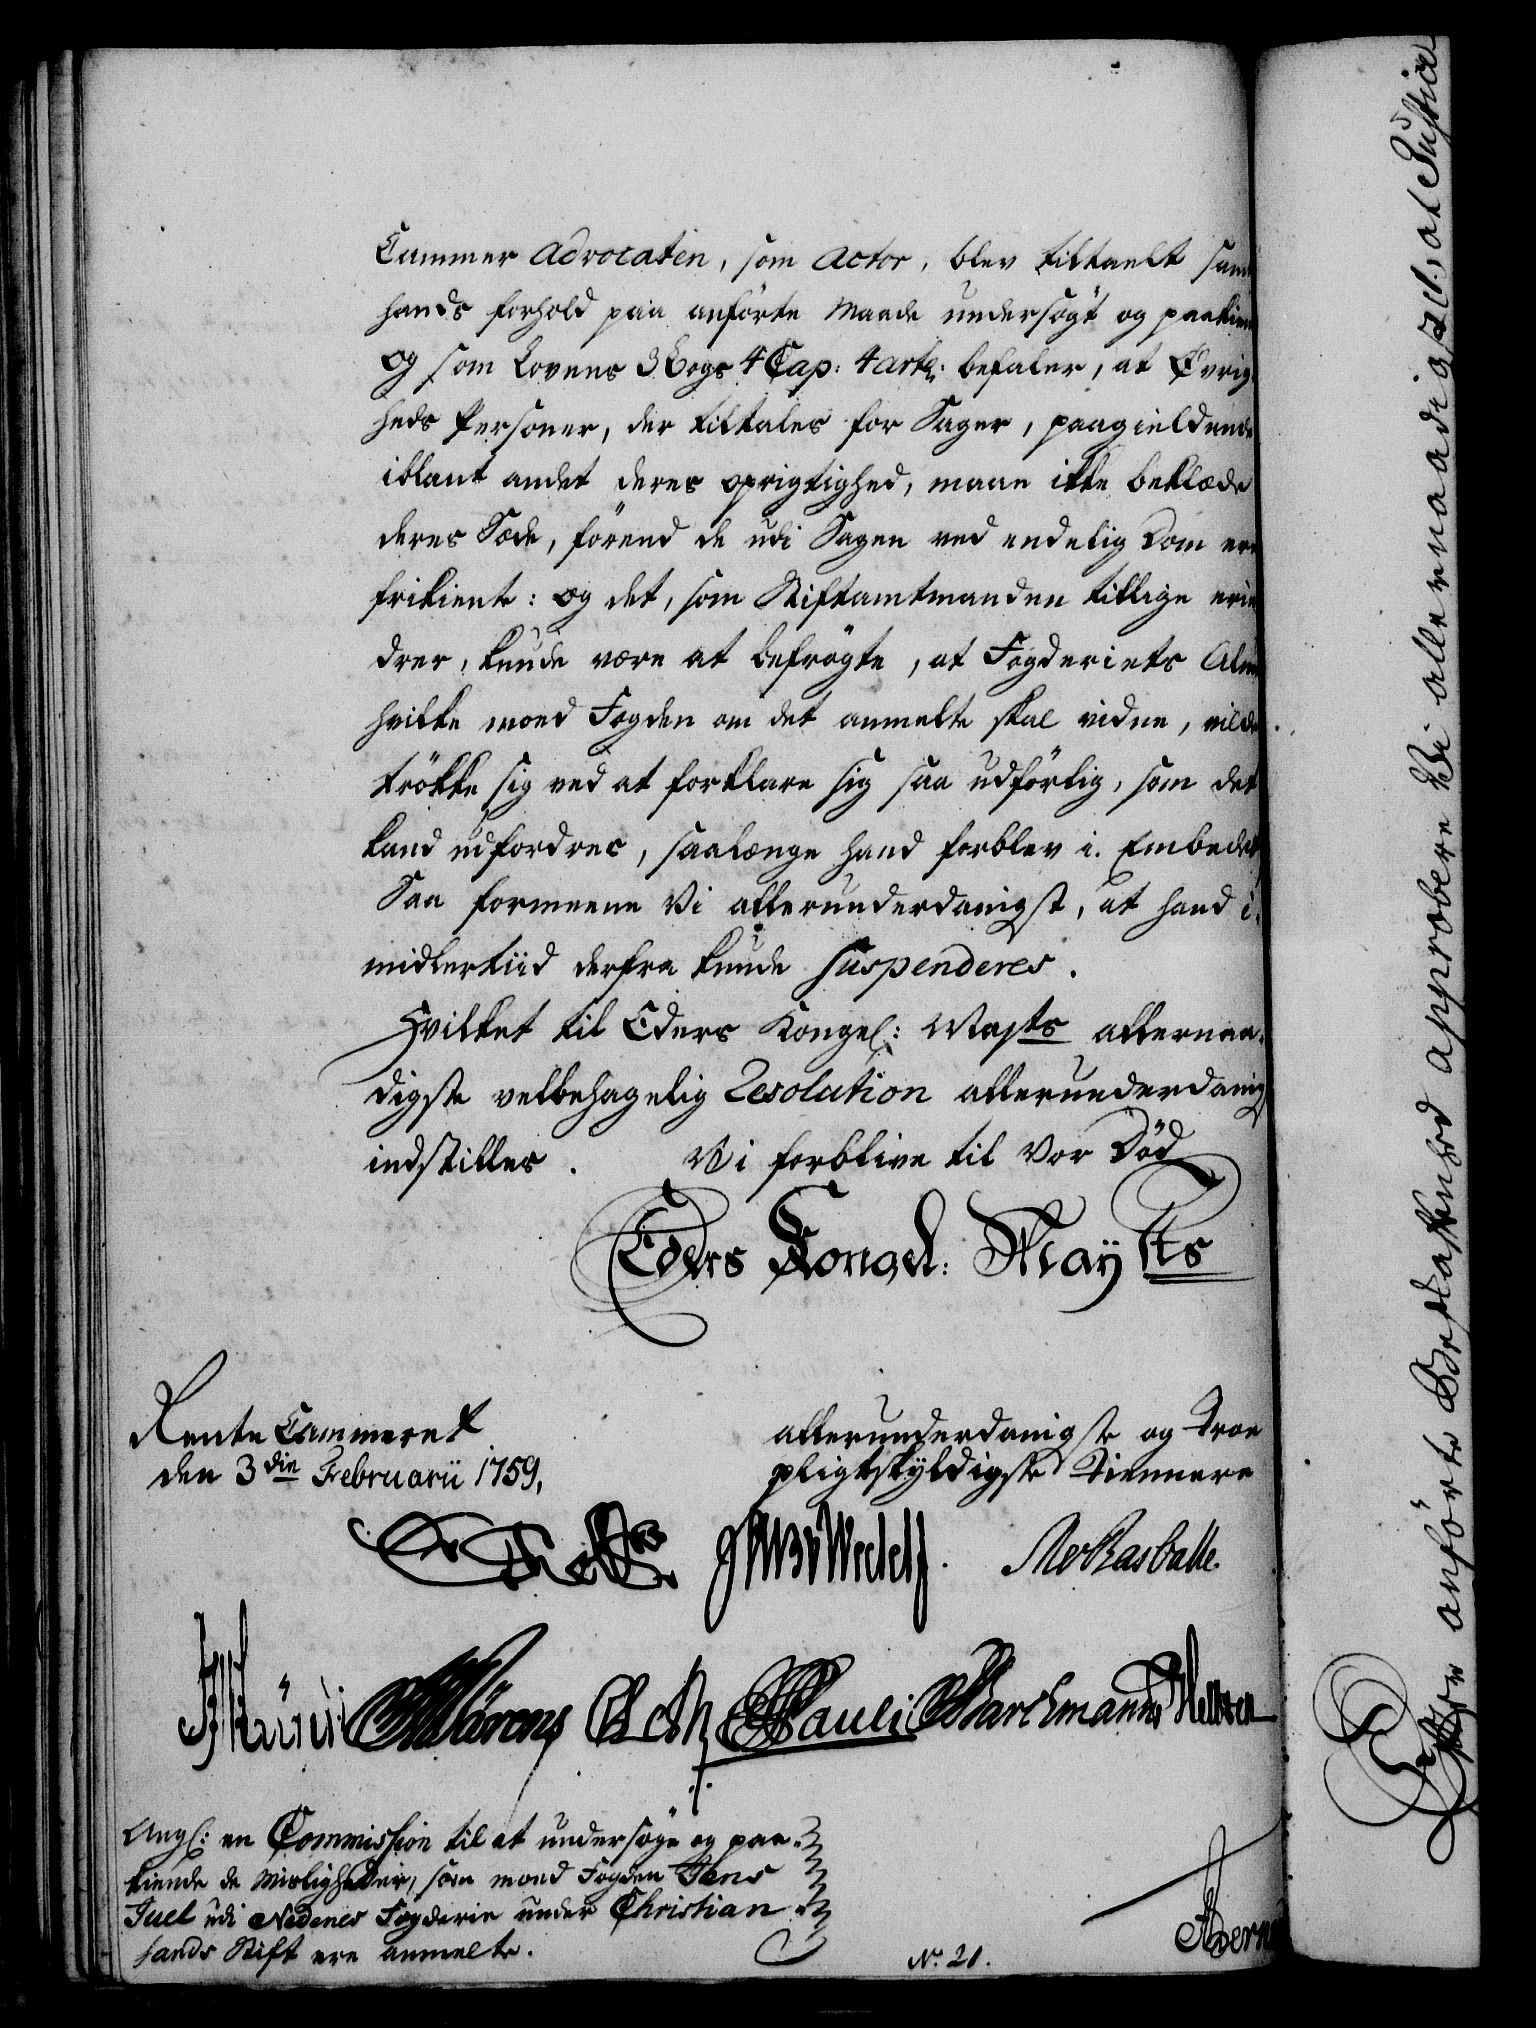 Cammer Advocaten, som Actor, blev tiltaelt samt
hands forhold paa anförte Maade undersögt og paakiendt
og som Lovens 3 Bogs 4 Cap: 4 Art: befaler, at Øvrig-
heds Personer, der tiltales for Sager, paagieldende
iblant andet deres oprigtighed, maae ikke beklæde
deres Sæde, förend de udi Sagen ved endelig Dom ere
frikiente: og det, som Stiftamtmanden tillige erin-
drer, kunde være at befrögte, at Fogderiets
hvilke moed Fogden om det anmelte skal vidne, vilde
trökke sig ved at forklare sig saa udförlig, som det
kand udfordres, saalænge hand forblev i Embedet
Saa formeene Vi allerunderdanigst, at hand i-
midlertiid derfra kunde suspenderes.
Hvilket til Eders Kongel: Mayts allernaa-
digste velbehagelig Resolution allerunderdanigst
indstilles. Vi forblive til Vor Död
Eders Kongel: Mayts
Rente Cammeret
den 3die Februarii 1759,
allerunderdanigste og Troe
pligtskyldigste Tiennere
Wedell. Rasballe.
Pauli Barchmann
Angl: en Commission til at undersöge og paa-
kiende de Misligheder, som moed Fogden Jens
Juel udi Nedenes Fogderie under Christian-
sands Stift ere anmelte.
No. 21.
Efter anförte Beskaffenhed approbere Vi allernaadigst, at Justice